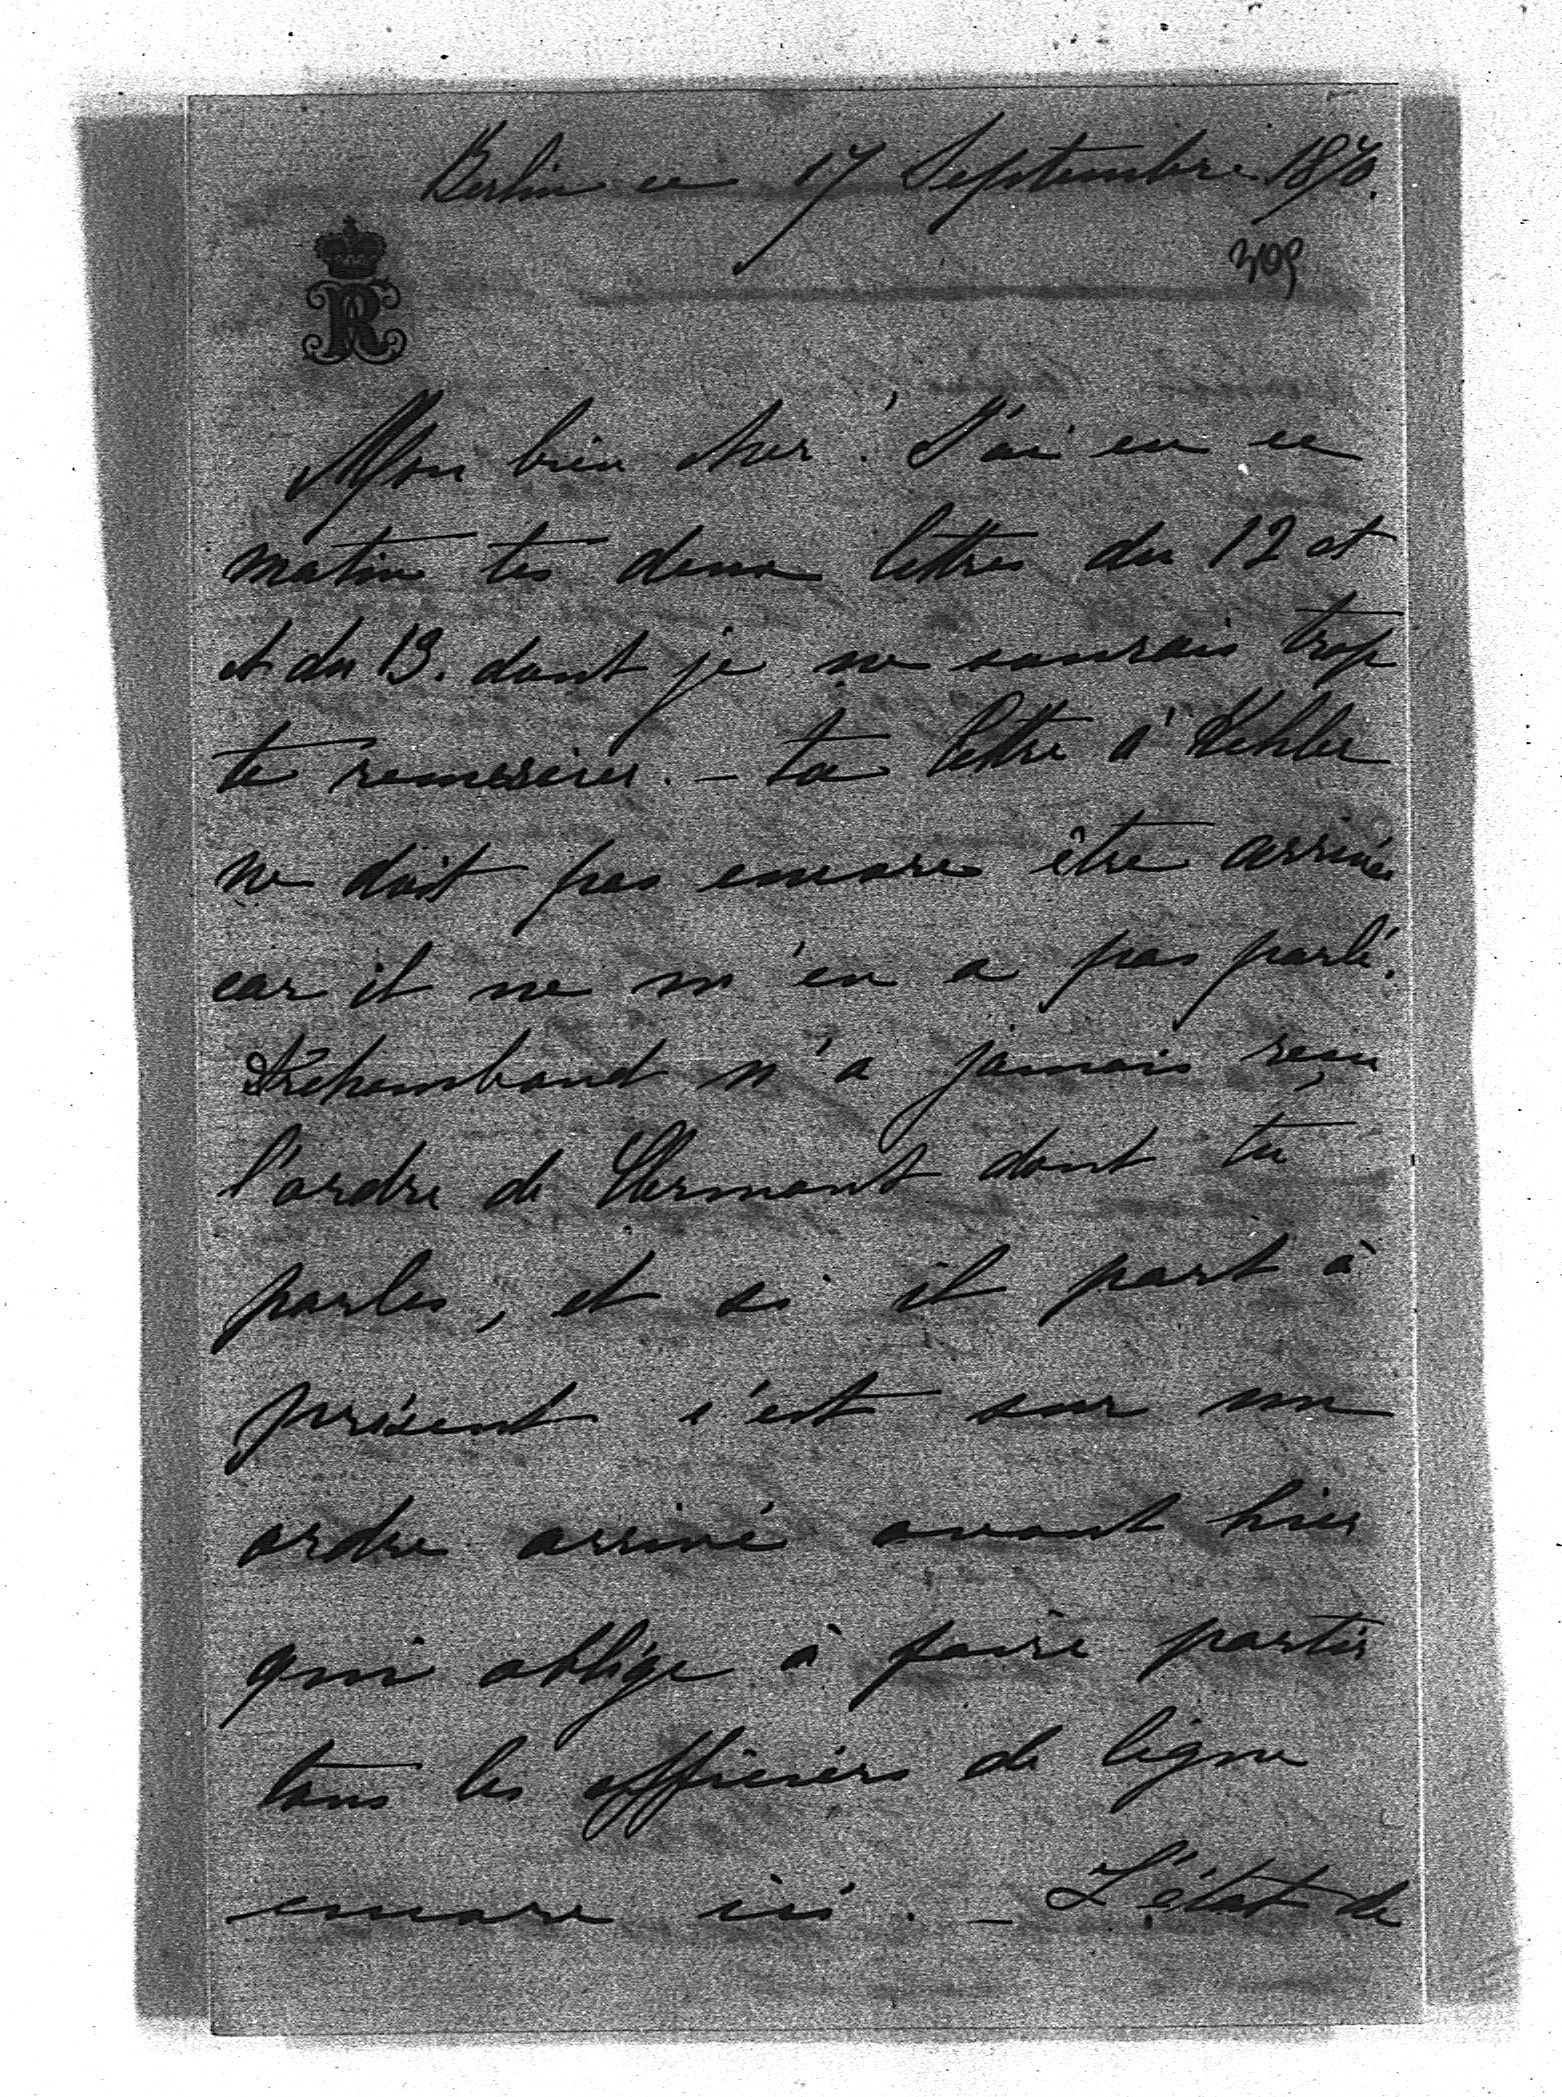 Berlin ce 17 Septembre 1870.
309
R
Mon bien cher! J'ai eu ce
matin tes deux lettres du 12 et
et du 13. dont je ne saurais trop
te remercier. – ta lettre à Kehler
ne doit pas encore être arrivée
car il ne m'en a pas parlé.
n'a jamais reçu
l'ordre de Clermont dont tu
parles, et si il part à
présent c'est sur un
ordre arrivé avant hier
qui oblige à faire partir
tous les officiers de ligne
encore ici. – L'état de